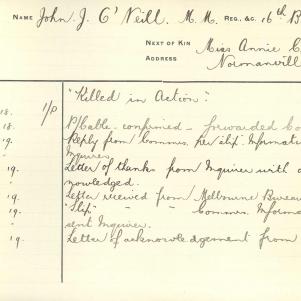 NAME John J. O'Neill. M.M. REG., &C. 16th B
NEXT OF KIN Miss Annie O
ADDRESS Normanvill
"Killed in Action."
18. 1/P
18. P/Cable - confirmed - forwarded Co
" Reply from Comms. her slip. Informatio
Inquirer.
19. Letter of thanks from Inquirer with a
nowledged.
19. Letter received from Melbourne Bureau
19. "Slip" " " Comms. Informa
" sent Inquirer.
19. Letter of acknowledgement from